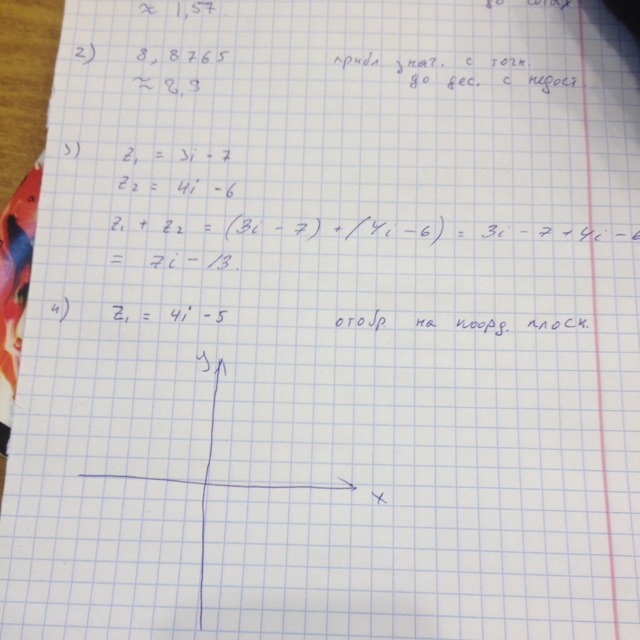 ≈ 1,57 до сотых
2) 8,8765 прибл знач. с точн.
≈ 8,9 до дес. с недост.
3) z₁ = 3i - 7
z₂ = 4i - 6
z₁ + z₂ = (3i - 7) + (4i - 6) = 3i - 7 + 4i - 6
= 7i - 13.
4) z₁ = 4i - 5 отобр на коорд. плоск.
y
x